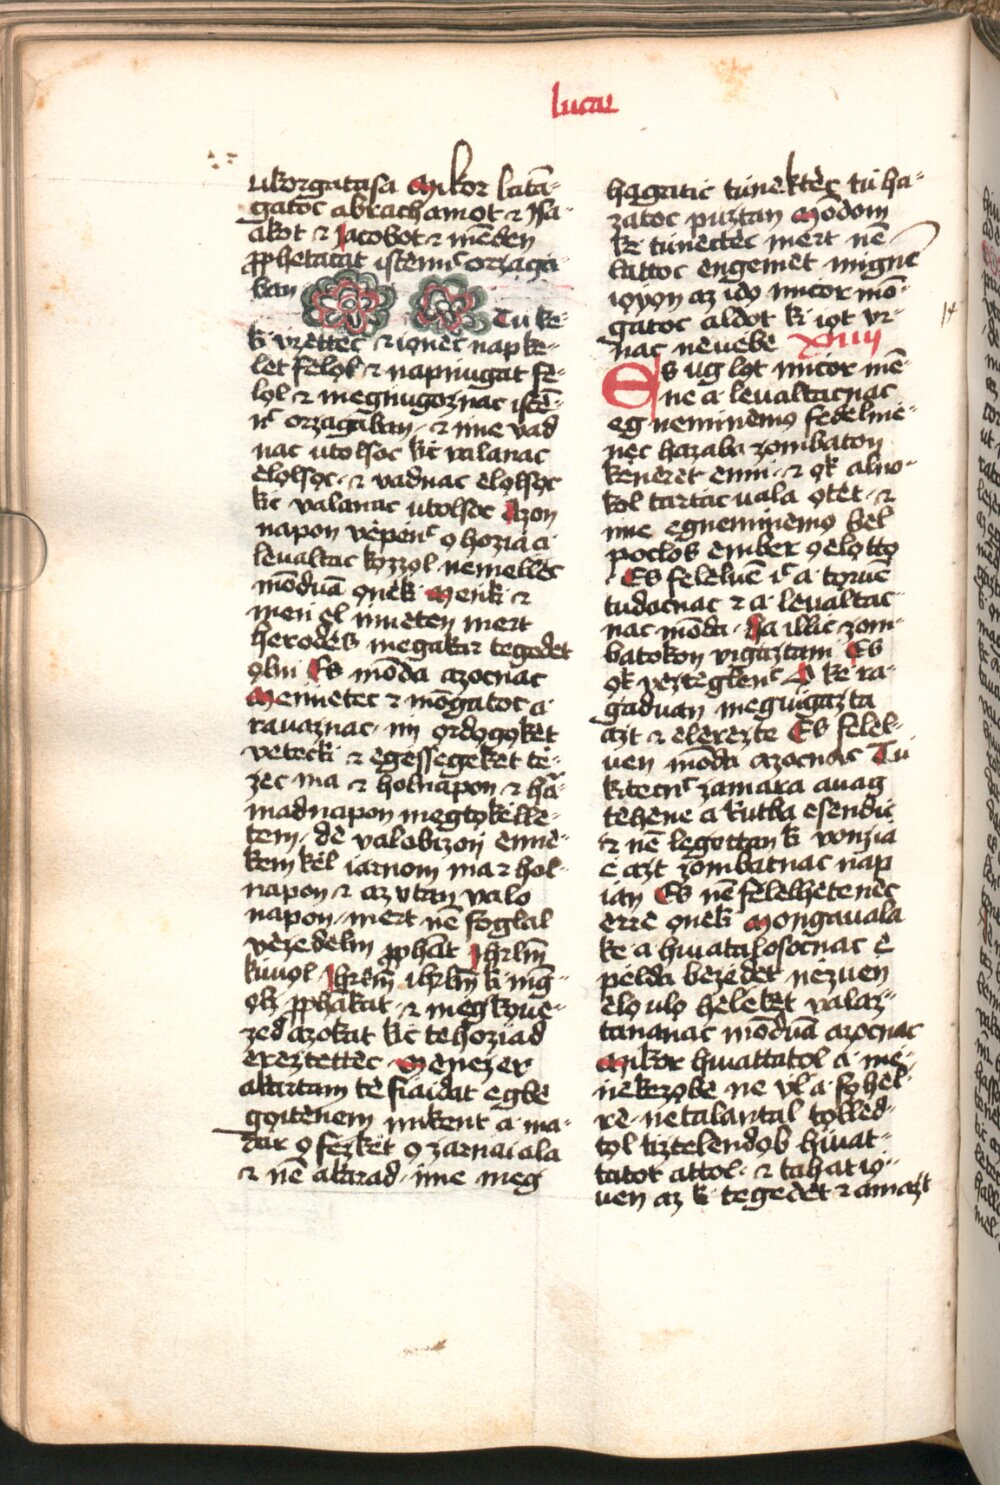 lucai
ukorgatasa mikor latā-
gatoc abrachamot ꝛ Isa-
akot ꝛ Jacobot ꝛ mēden
ꝓphetatat istenncͨ orzaga
ban Tu ke-
ki vzettec ꝛ ionec nap ke-
let felol ꝛ napnugat fe-
lol ꝛ megnugoznac istē-
nͨ orzagaban ꝛ ime vad
nac utolsoc kic valanac
elolsoc ꝛ vadnac elolsoc
kic valanac utolsoc Azon
napon vepenͨ o hozia a
leualtac kozzol nemellec
mōduā onek Menk ꝛ
meń el inneten mert
herodes megakar tegodet
olni Es mōda azocnac
Mennetec ꝛ mōgatoc a
rauaznac im ordogoket
vetecki ꝛ egessegeket te-
zec ma ꝛ holnapon ꝛ ha-
madnapon megtokelle-
tem de valobizoń enne-
kem kel iarnom ma ꝛ hol-
napon ꝛ az vtan valo
napon mert nē foglal
vezedelm ꝓphāt Jhrlm̄
kiuol Jhrlm̄ ihrlm̄ ki mḡ-
olꝫ ꝓphakat ꝛ megkoue-
zed azokat kic te hoziad
ereztettec Menezer
akartam te fiaidat egbe
goitenem mikent a ma-
dar o fezket o zarnai ala
ꝛ nē akarad ime meg
hagatic tūnektēc tū ha-
zatoc puztan Mōdom
ke tūnectec mert nē
lattoc engemet mignē
ioyon az ido micor mō-
gatoc aldot ki iot vr-
nac neuēbē XIIII
Es ug lot micor mē-
ne a leualtacnac
eg neminemo fedelme-
nec hazaba zombaton
keneret enni ꝛ ok alno-
kol tartac uala otet ꝛ
ime egneminemo bel
poclos ember o elotto
Es feleluē ic a toruē
tudocnac ꝛ a leualtac-
nac mōda Ha illic zom-
batokon vigaztani Es
ok veztegleneͨ O ke ra-
gaduan meguigazta
azt ꝛ elerezte Es felel-
uen mōda azocnac Tu
kitecnͨ zamara auag
tehene a kutba esendic
ꝛ nē legottan ki vonzia
e azt zombatnac nap
ian Es nē felelhetenec
erre onek Mongauala
ke a hiuatalosocnac e
pelda bezedet nezuen
elo ulo heleket valaz-
tananac mōduā azocnac
Mikor hiuattatol a me-
nekezobe ne vl a fo hel-
re netalantal tolled-
tol tiztelendob hiuat-
tatot attol ꝛ tahat io-
uen az ki tegedet ꝛ amazt
14